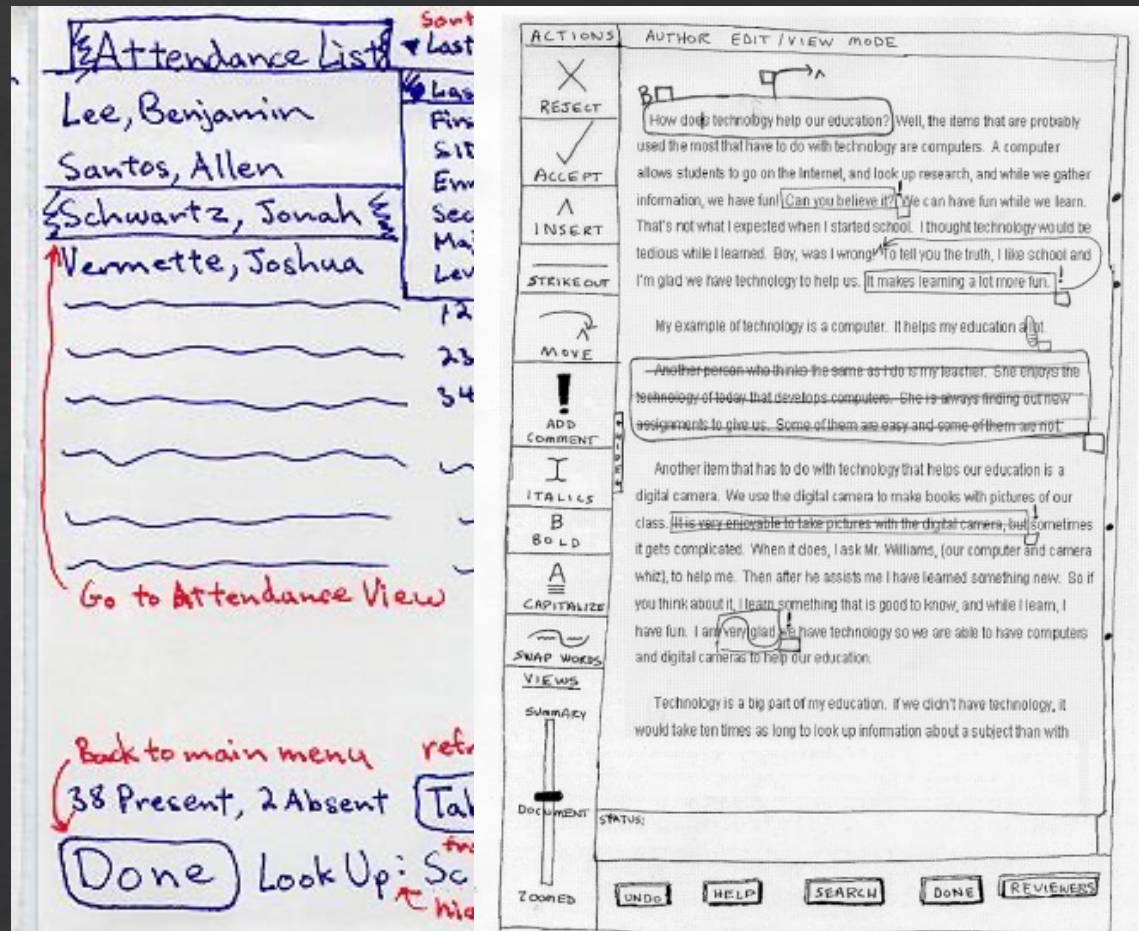 Attendance List
Lee, Benjamin
Santos, Allen
Schwartz, Jonah
Vermette, Joshua
Go to Attendance View
Back to main menu
38 Present, 2 Absent
Done Look Up:
Last
ACTIONS
REJECT
ACCEPT
INSERT
STRIKEOUT
MOVE
ADD
COMMENT
ITALICS
B
BOLD
A
CAPITALIZE
SWAP WORDS
VIEWS
SUMMARY
DOCUMENT
ZOOMED
AUTHOR EDIT/VIEW MODE
B
How does technology help our education? Well, the items that are probably
used the most that have to do with technology are computers. A computer
allows students to go on the Internet, and look up research, and while we gather
information, we have fun! Can you believe it? We can have fun while we learn.
That's not what I expected when I started school. I thought technology would be
tedious while I learned. Boy, was I wrong! To tell you the truth, I like school and
I'm glad we have technology to help us. It makes learning a lot more fun.
My example of technology is a computer. It helps my education a lot.
Another person who thinks the same as I do is my teacher. She enjoys the
technology of today that develops computers. She is always finding out new
assignments to give us. Some of them are easy and some of them are not.
Another item that has to do with technology that helps our education is a
digital camera. We use the digital camera to make books with pictures of our
class. It is very enjoyable to take pictures with the digital camera, but sometimes
it gets complicated. When it does, I ask Mr. Williams, (our computer and camera
whiz), to help me. Then after he assists me I have learned something new. So if
you think about it, I learn something that is good to know, and while I learn, I
have fun. I am very glad we have technology so we are able to have computers
and digital cameras to help our education.
Technology is a big part of my education. If we didn't have technology, it
would take ten times as long to look up information about a subject than with
STATUS:
UNDO HELP SEARCH DONE REVIEWERS